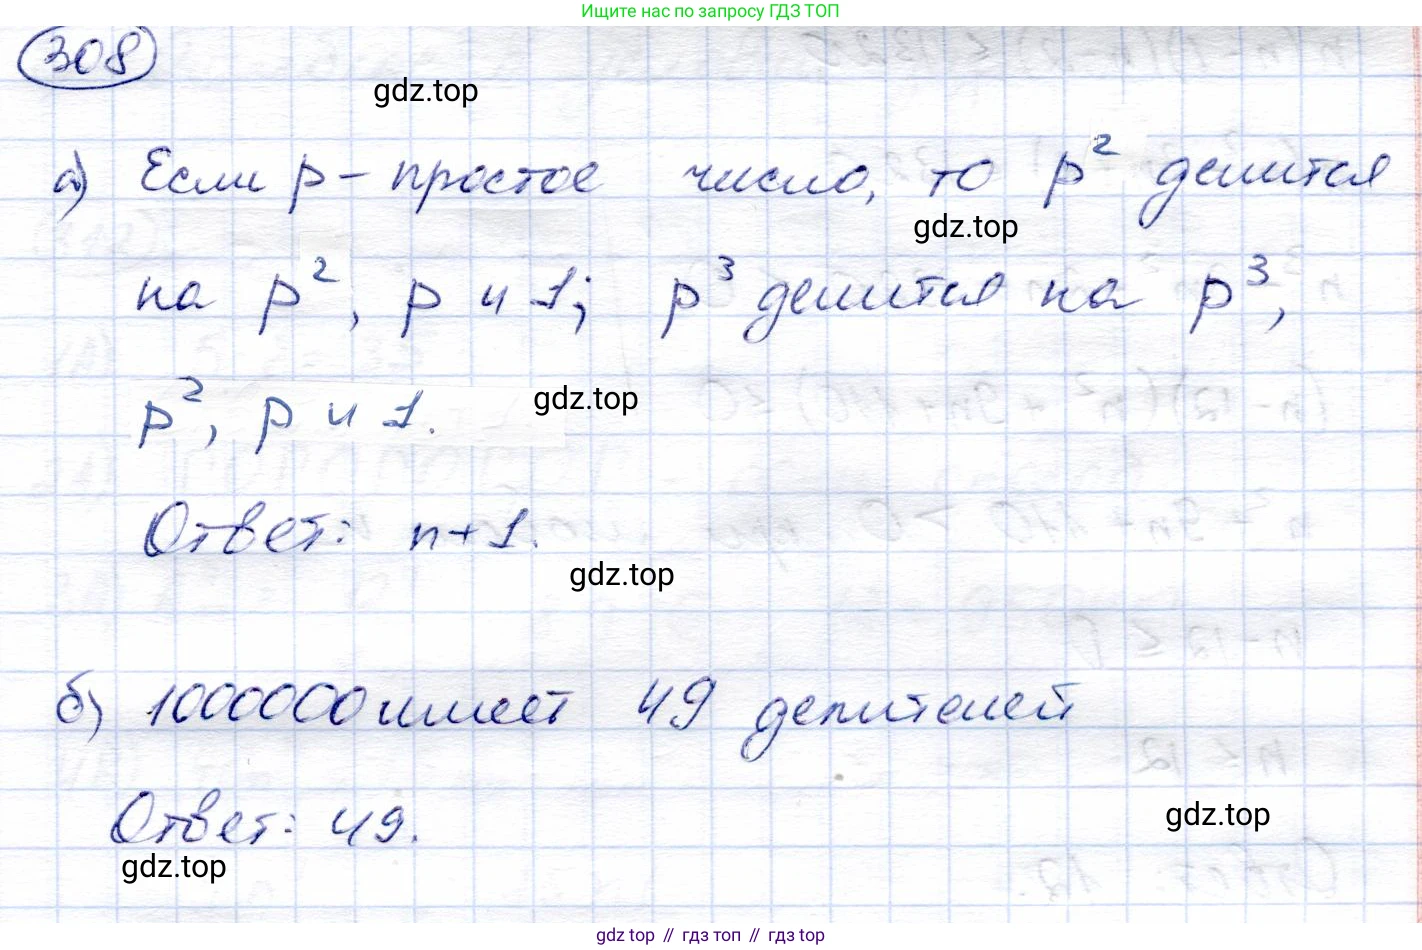 Ищите нас по запросу ГДЗ ТОП
308
gdz.top
а) Если p - простое число, то p² делится
gdz.top
на p², p и 1; p³ делится на p³,
p², p и 1.
gdz.top
Ответ: n+1.
gdz.top
б) 1000000 имеет 49 делителей
gdz.top
Ответ: 49.
gdz.top
gdz.top // гдз топ // gdz top